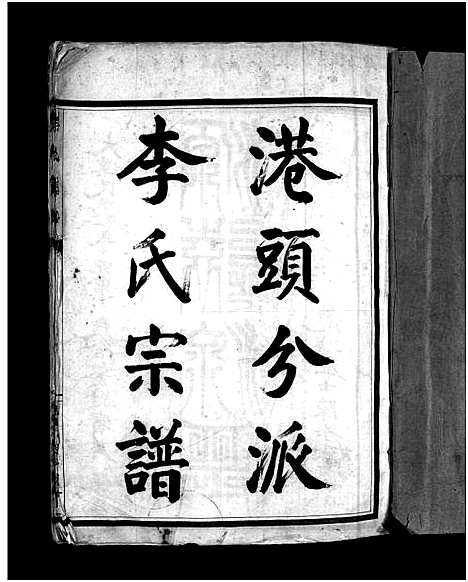 港頭分派
李氏宗譜